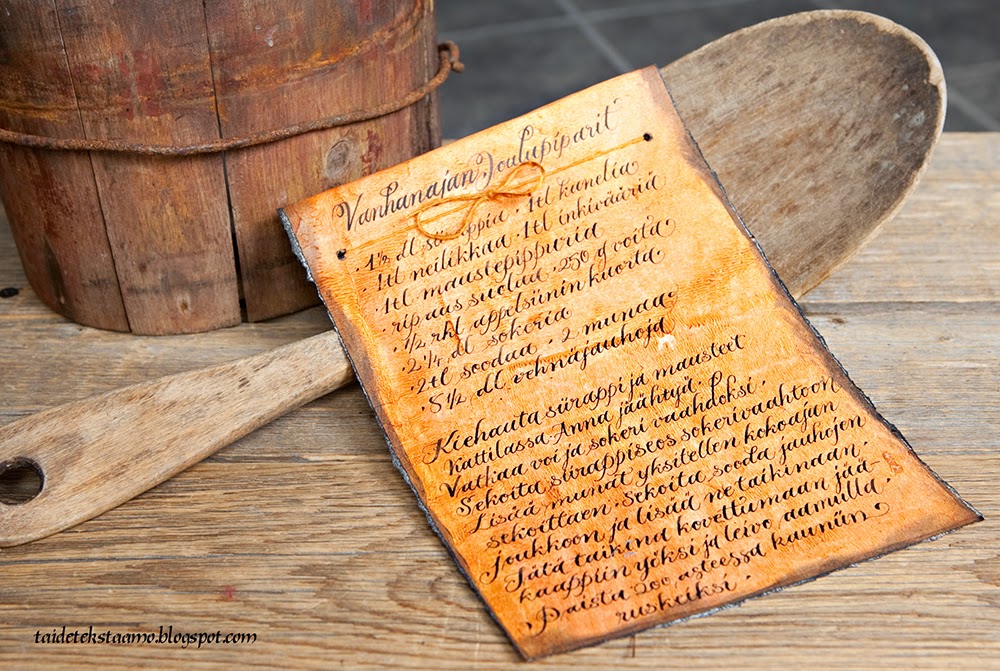 Vanhanajan Joulupiparit
· 1½ dl siirappia · 1tl kanelia
· 1tl neilikkaa · 1tl inkivääriä
· 1tl maustepippuria
· ripaus suolaa · 250 g voita
· ½ rkl appelsiinin kuorta
· 2¼ dl sokeria
· 2tl soodaa · 2 munaa
· 8½ dl vehnäjauhoja
Kiehauta siirappi ja mausteet
kattilassa. Anna jäähtyä.
Vatkaa voi ja sokeri vaahdoksi.
Sekoita siirappiseos sokerivaahtoon
Lisää munat yksitellen kokoajan
sekoittaen. Sekoita sooda jauhojen
joukkoon ja lisää ne taikinaan.
Jätä taikina kovettumaan jää-
kaappiin yöksi ja leivo aamulla.
Paista 200 asteessa kauniin
ruskeiksi.
taidetekstaamo.blogspot.com